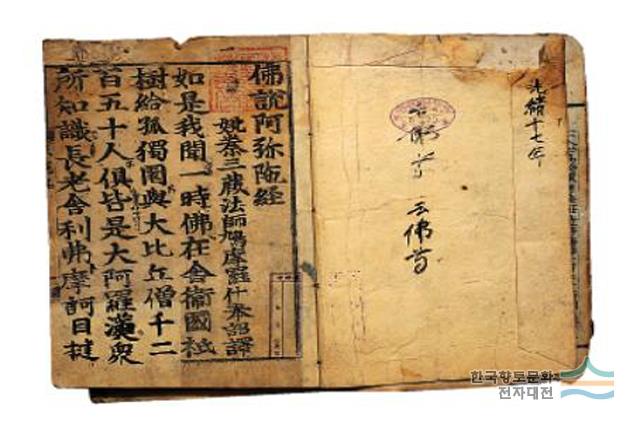 光緒十七年
佛說阿弥陁経
姚秦三藏法師鳩摩羅什奉詔譯
如是我聞一時佛在舍衞國祇
樹給孤獨園與大比丘僧千二
百五十人俱皆是大阿羅漢衆
所知識長老舍利弗摩訶目揵
한국향토문화
전자대전